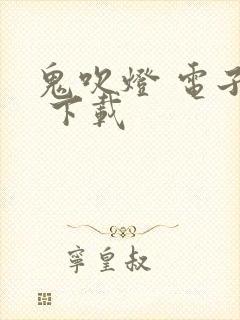 鬼吹燈 電子
下載
寧皇叔